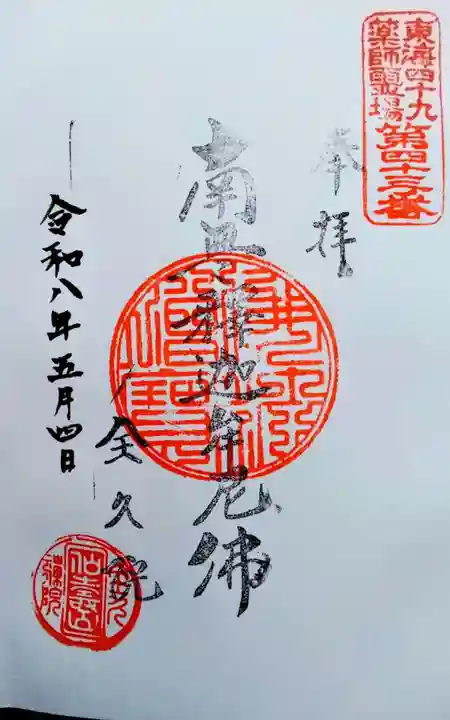 東海四十九
薬師霊場第四十三番
奉拝
南無釋迦牟尼佛
全久院
令和八年五月四日